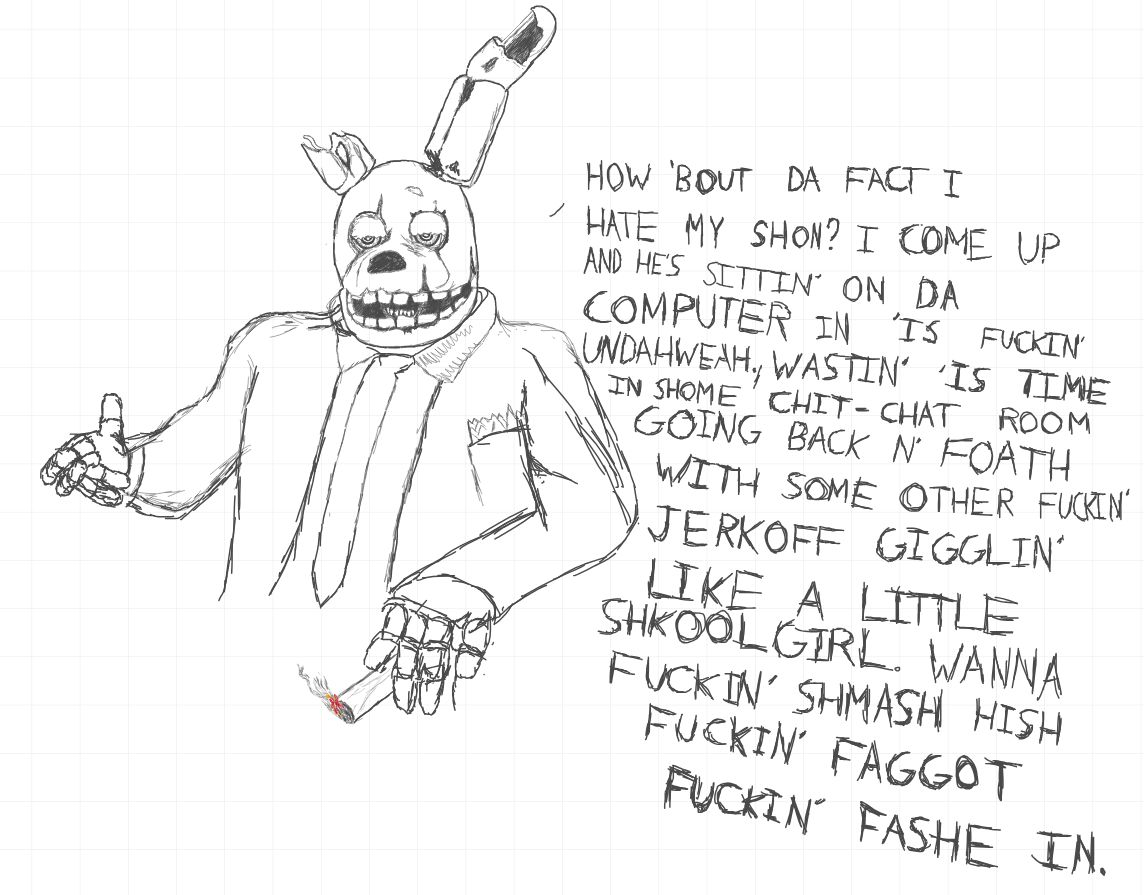 HOW 'BOUT DA FACT I
HATE MY SHON? I COME UP
AND HE'S SITTIN' ON DA
COMPUTER IN 'IS FUCKIN'
UNDAHWEAH, WASTIN' 'IS TIME
IN SHOME CHIT-CHAT ROOM
GOING BACK N' FOATH
WITH SOME OTHER FUCKIN'
JERKOFF GIGGLIN'
LIKE A LITTLE
SHKOOLGIRL. WANNA
FUCKIN' SHMASH HISH
FUCKIN' FAGGOT
FUCKIN' FASHE IN.